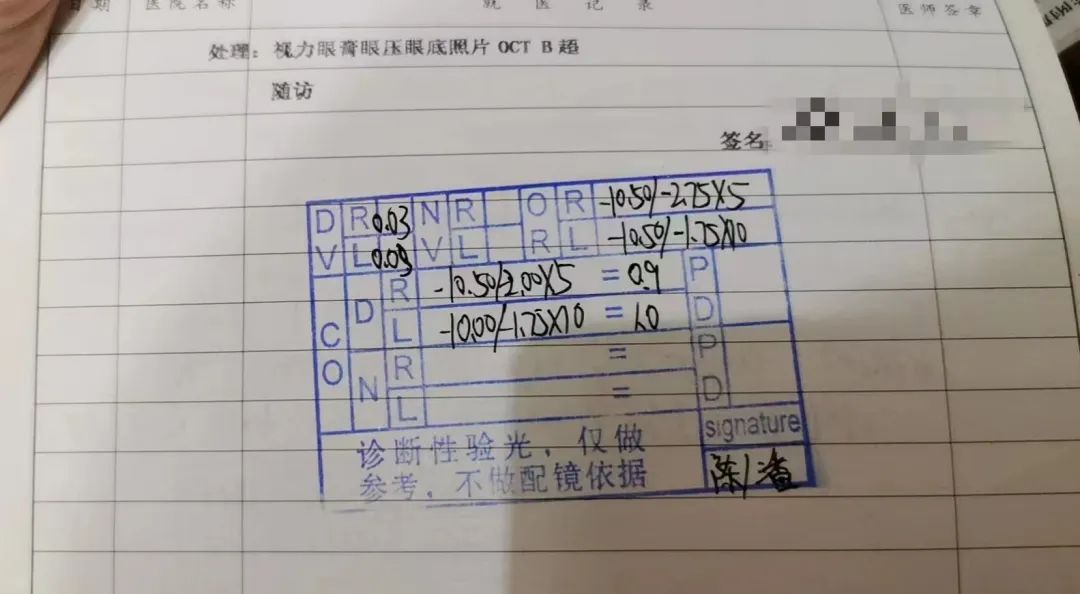 日期 医院名称 就医记录 医师签章
处理：视力眼膏眼压眼底照片 OCT B 超
随访
签名
D V R 0.03 N V R O R R -10.50/-2.75×5
L 0.09 L L -10.50/-1.75×10
C O D R -10.50/-2.00×5 = 0.9 P D
L -10.00/-1.75×10 = 1.0
N R = P D
L =
诊断性验光，仅做 signature
参考，不做配镜依据